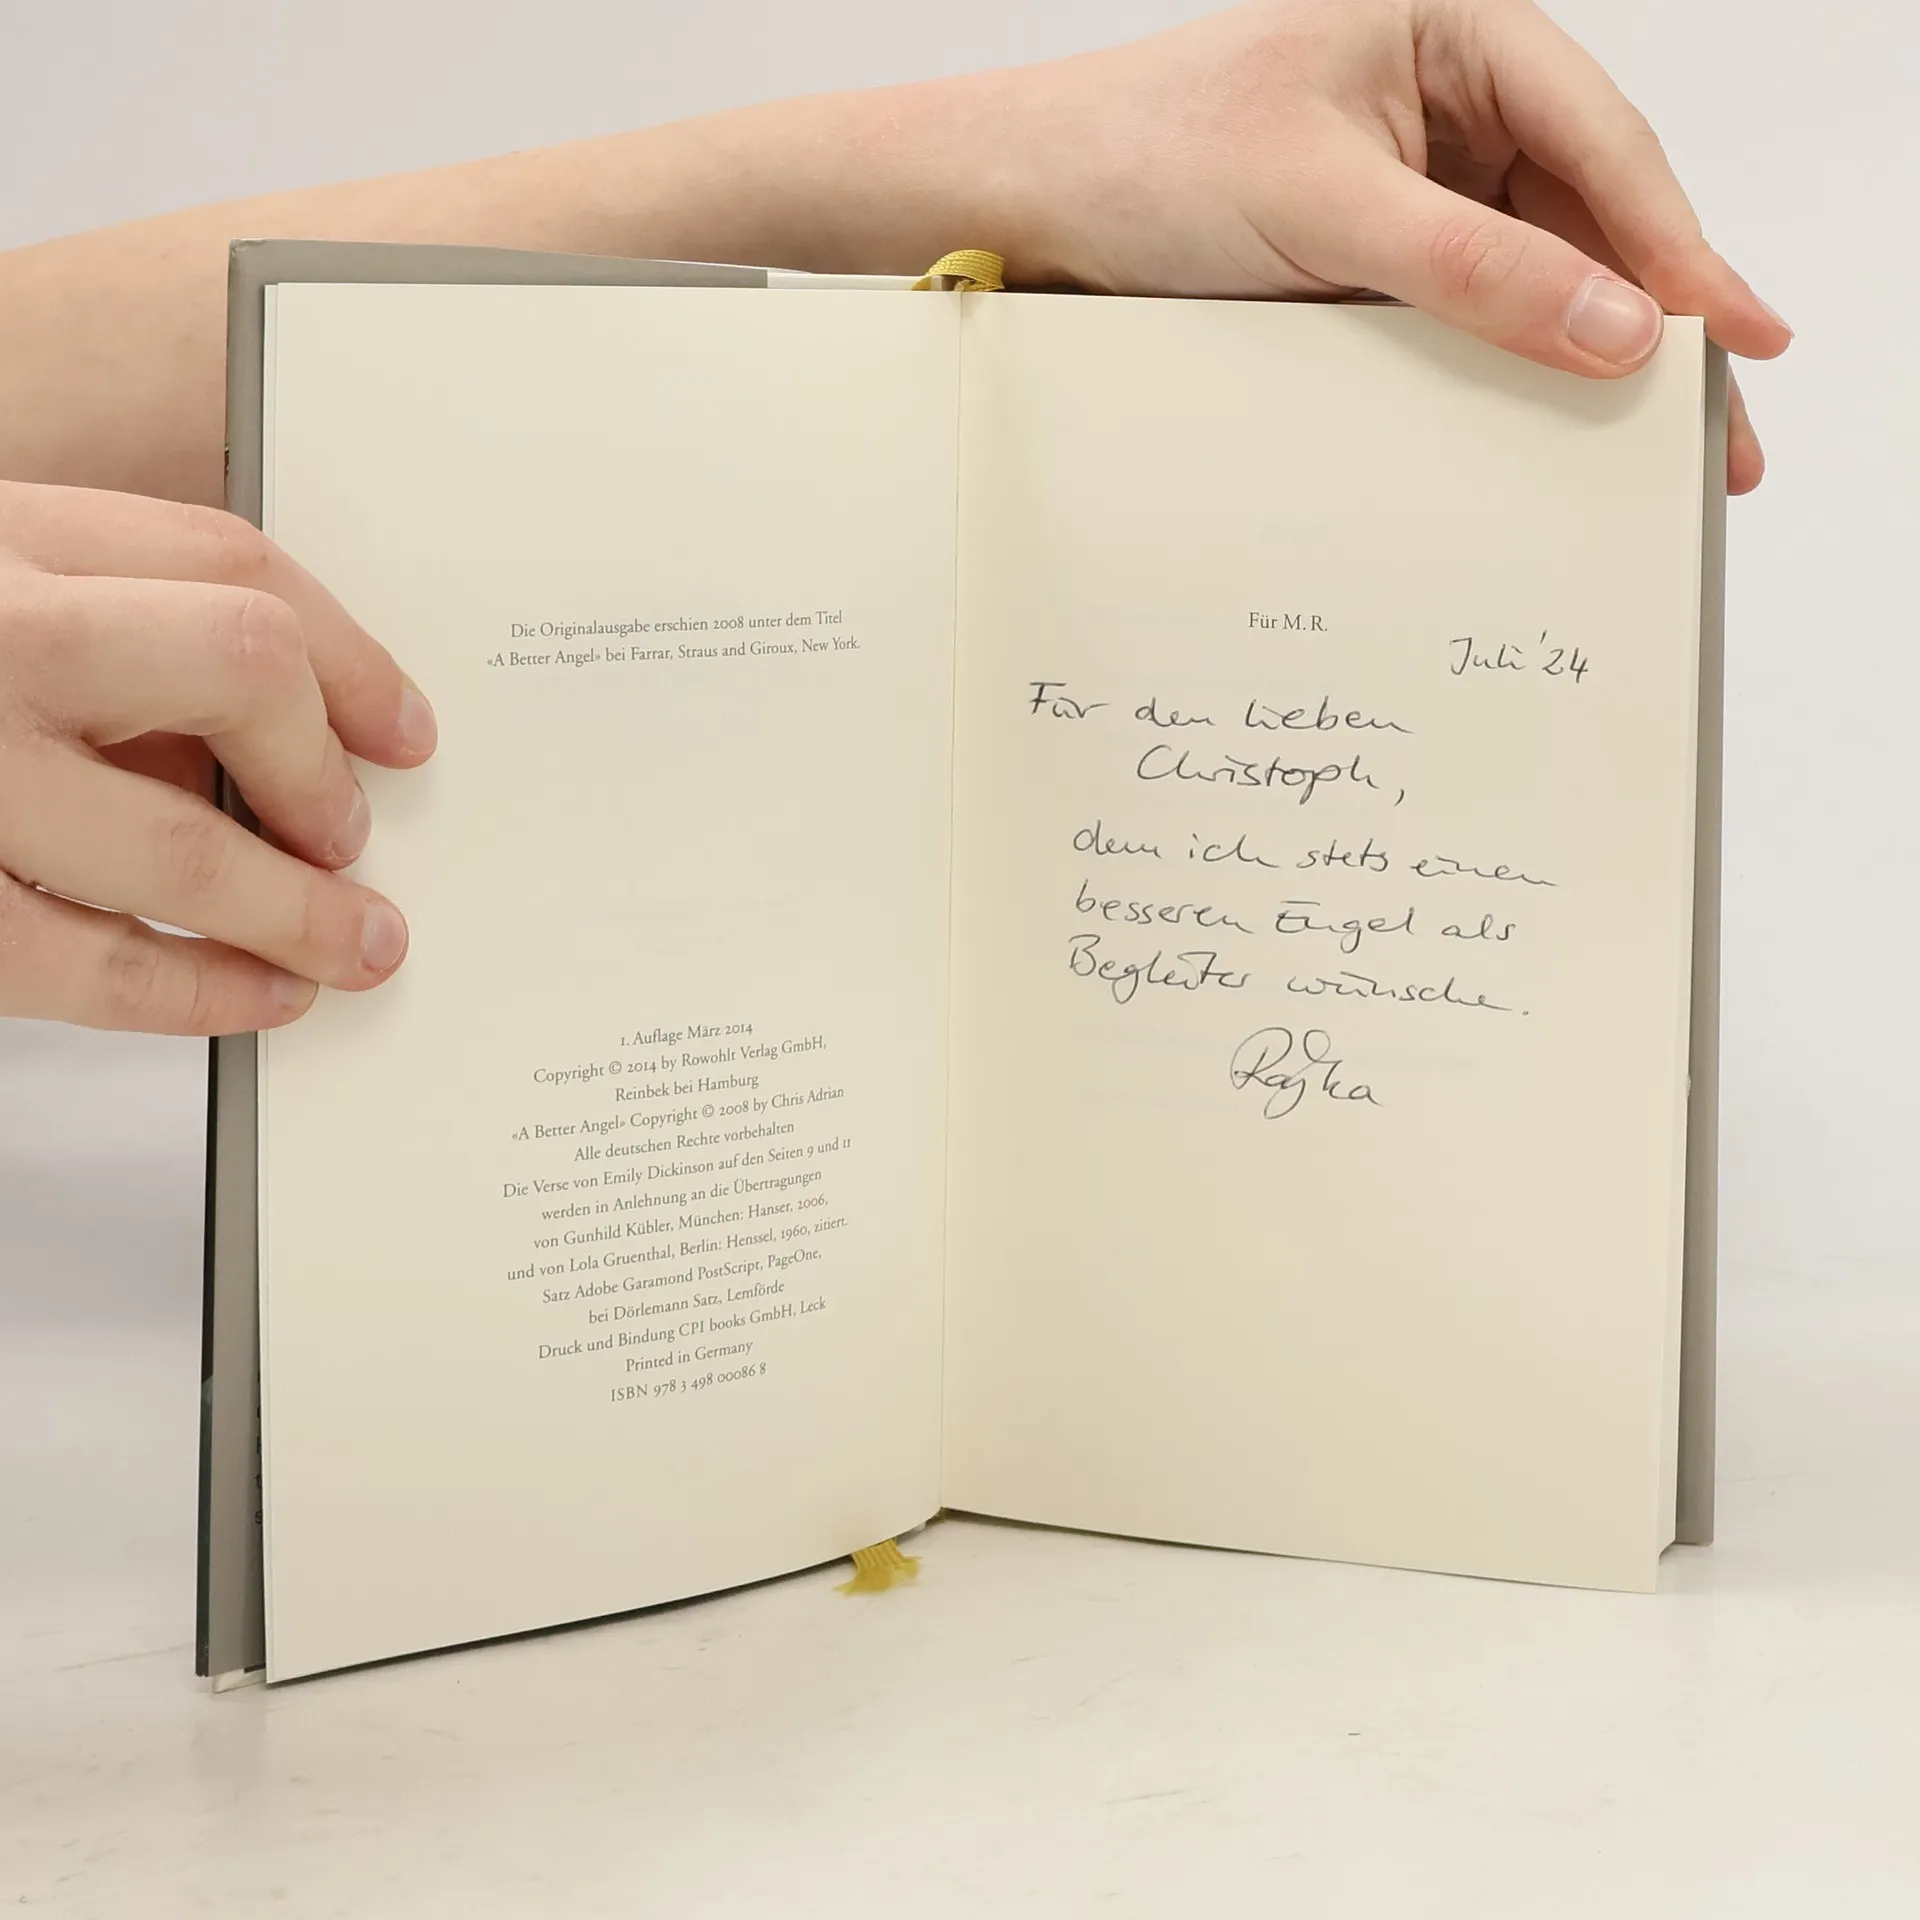 Die Originalausgabe erschien 2008 unter dem Titel
«A Better Angel» bei Farrar, Straus and Giroux, New York.
1. Auflage März 2014
Copyright © 2014 by Rowohlt Verlag GmbH,
Reinbek bei Hamburg
«A Better Angel» Copyright © 2008 by Chris Adrian
Alle deutschen Rechte vorbehalten
Die Verse von Emily Dickinson auf den Seiten 9 und 11
werden in Anlehnung an die Übertragungen
von Gunhild Kübler, München: Hanser, 2006,
und von Lola Gruenthal, Berlin: Henssel, 1960, zitiert.
Satz Adobe Garamond PostScript, PageOne,
bei Dörlemann Satz, Lemförde
Druck und Bindung CPI books GmbH, Leck
Printed in Germany
ISBN 978 3 498 00086 8
Für M. R.
Juli '24
Für den lieben
Christoph,
dem ich stets einen
besseren Engel als
Begleiter wünsche.